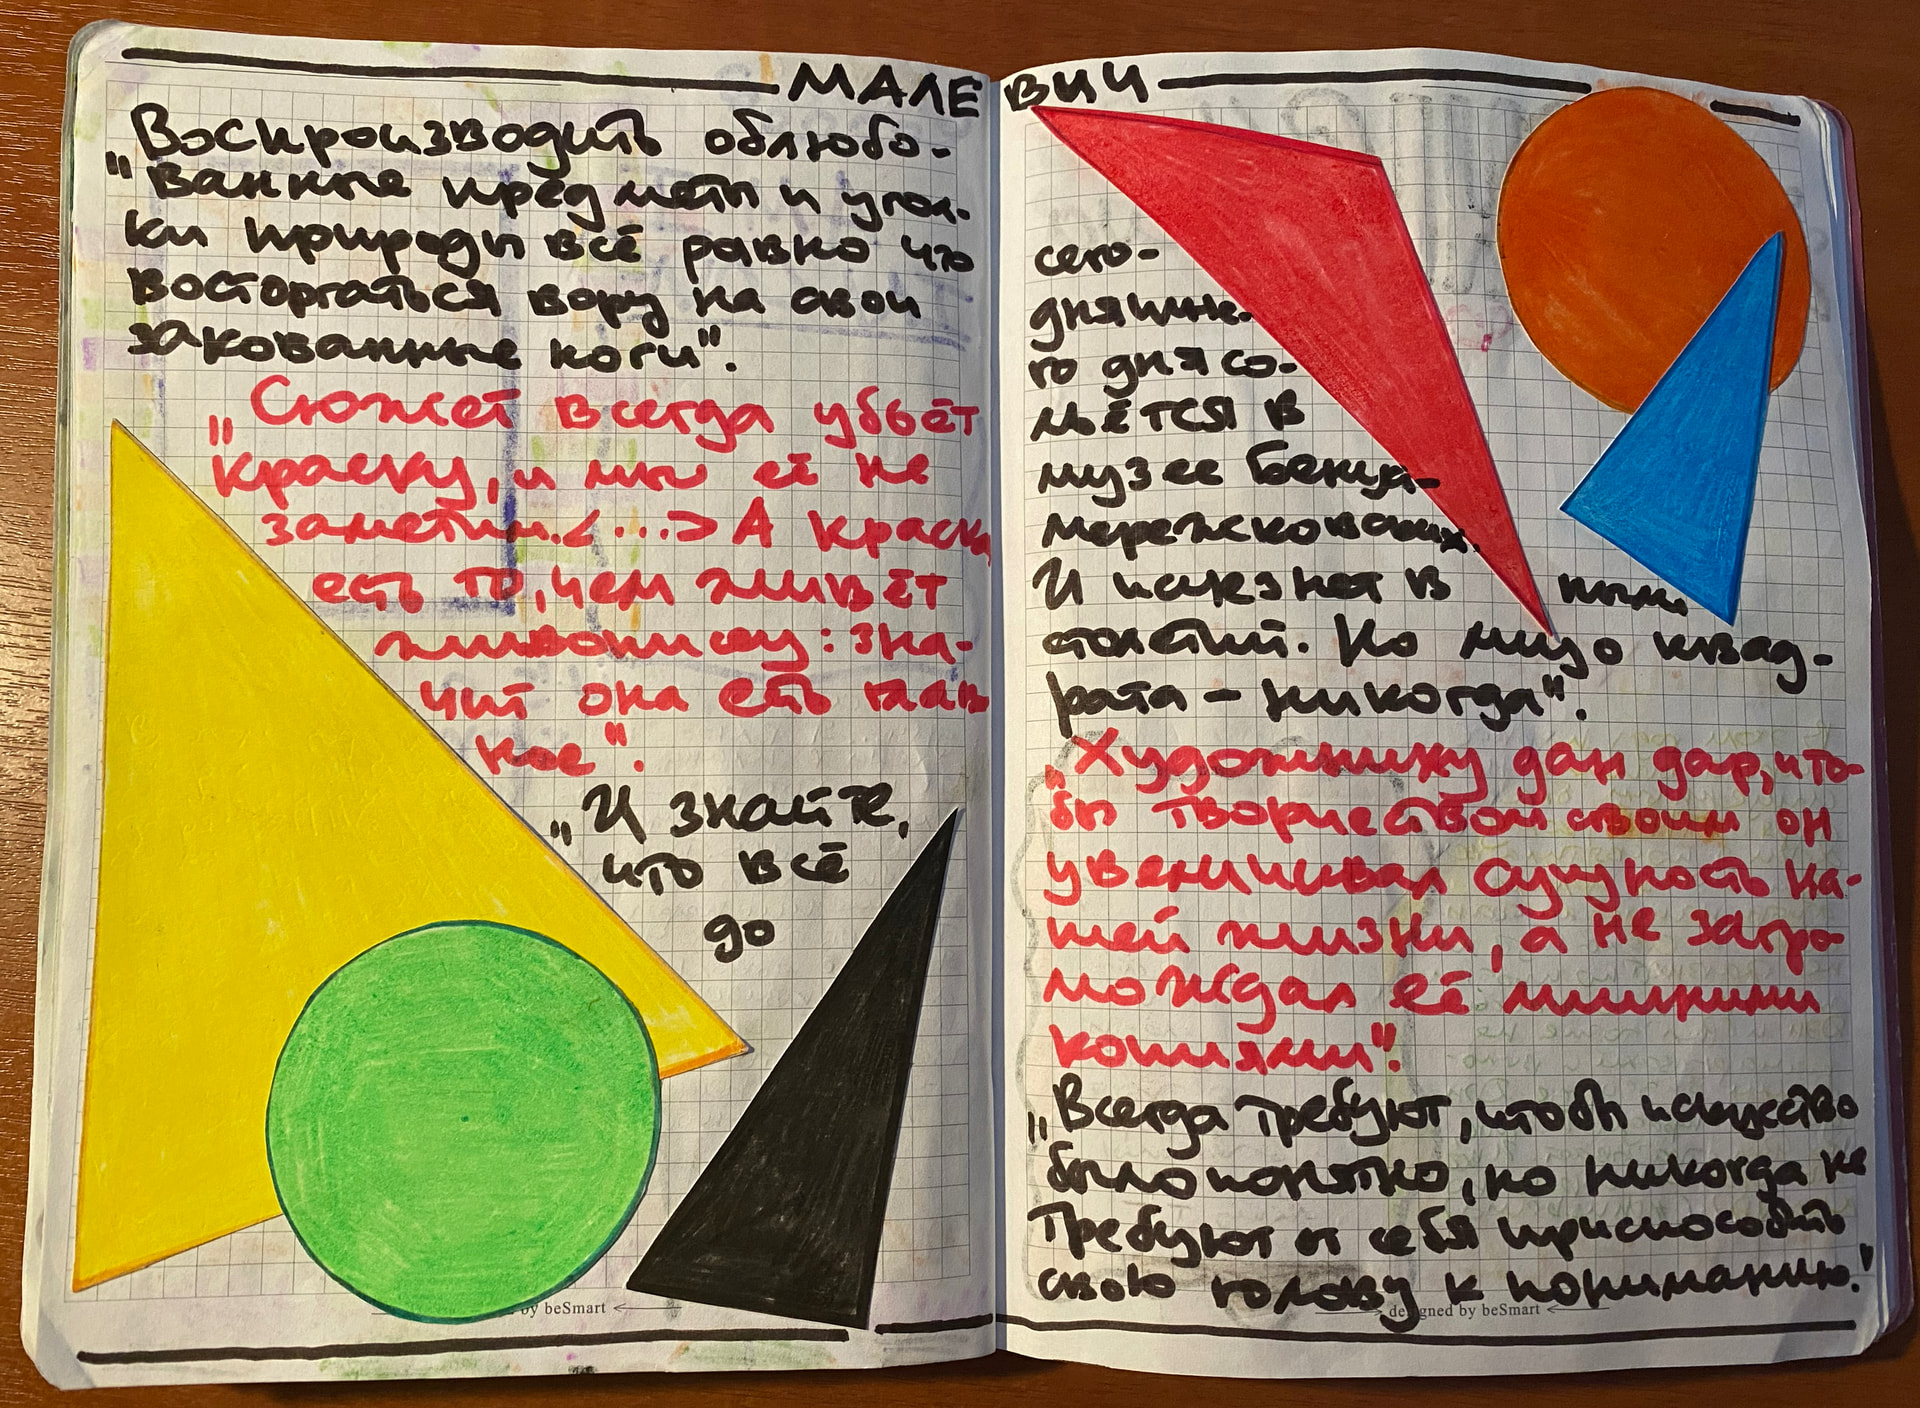 МАЛЕВИЧ
„Воспроизводить облюбо-
ванные предметы и угол-
ки природы всё равно что
восторгаться вору на свои
закованные ноги".
„Сюжет всегда убьёт
краску, и мы её не
заметим. <...> А краска
есть то, чем живёт
живопись: зна-
чит она есть глав
ное".
„И знайте,
что всё
до
by beSmart
сего-
дняшне-
го дня со-
мьётся в
музее бенуа-
мережсковских.
И исчезнет в пыли
столетий. Но лицо квад-
рата – никогда".
„Художнику дан дар, что-
бы творчеством своим он
увеличивал сущность на-
шей жизни, а не загро-
мождал её лишними
копиями".
„Всегда требуют, чтобы искусство
было понятно, но никогда не
требуют от себя приспособить
свою голову к пониманию."
designed by beSmart